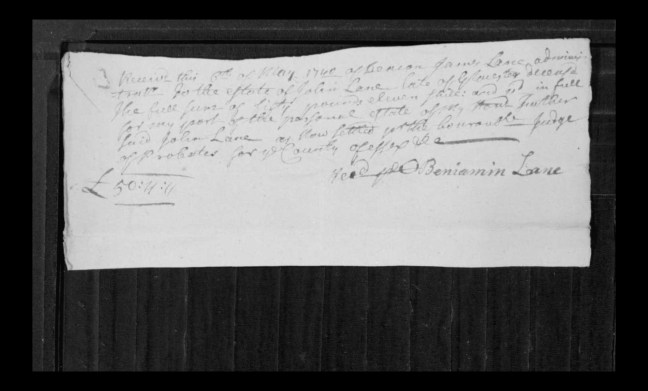 Received this 6th of May 1740 of Deacon James Lane adminis
trator to the estate of John Lane late of Glocester deceasd
the full sum of fifty pounds eleven shill: and in full
for my part of the personal estate of my Hond father
said John Lane as Now setled pr the honourable Judge
of Probates for ye County of essex &c
recd pr Beniamin Lane
£ 50:11:11